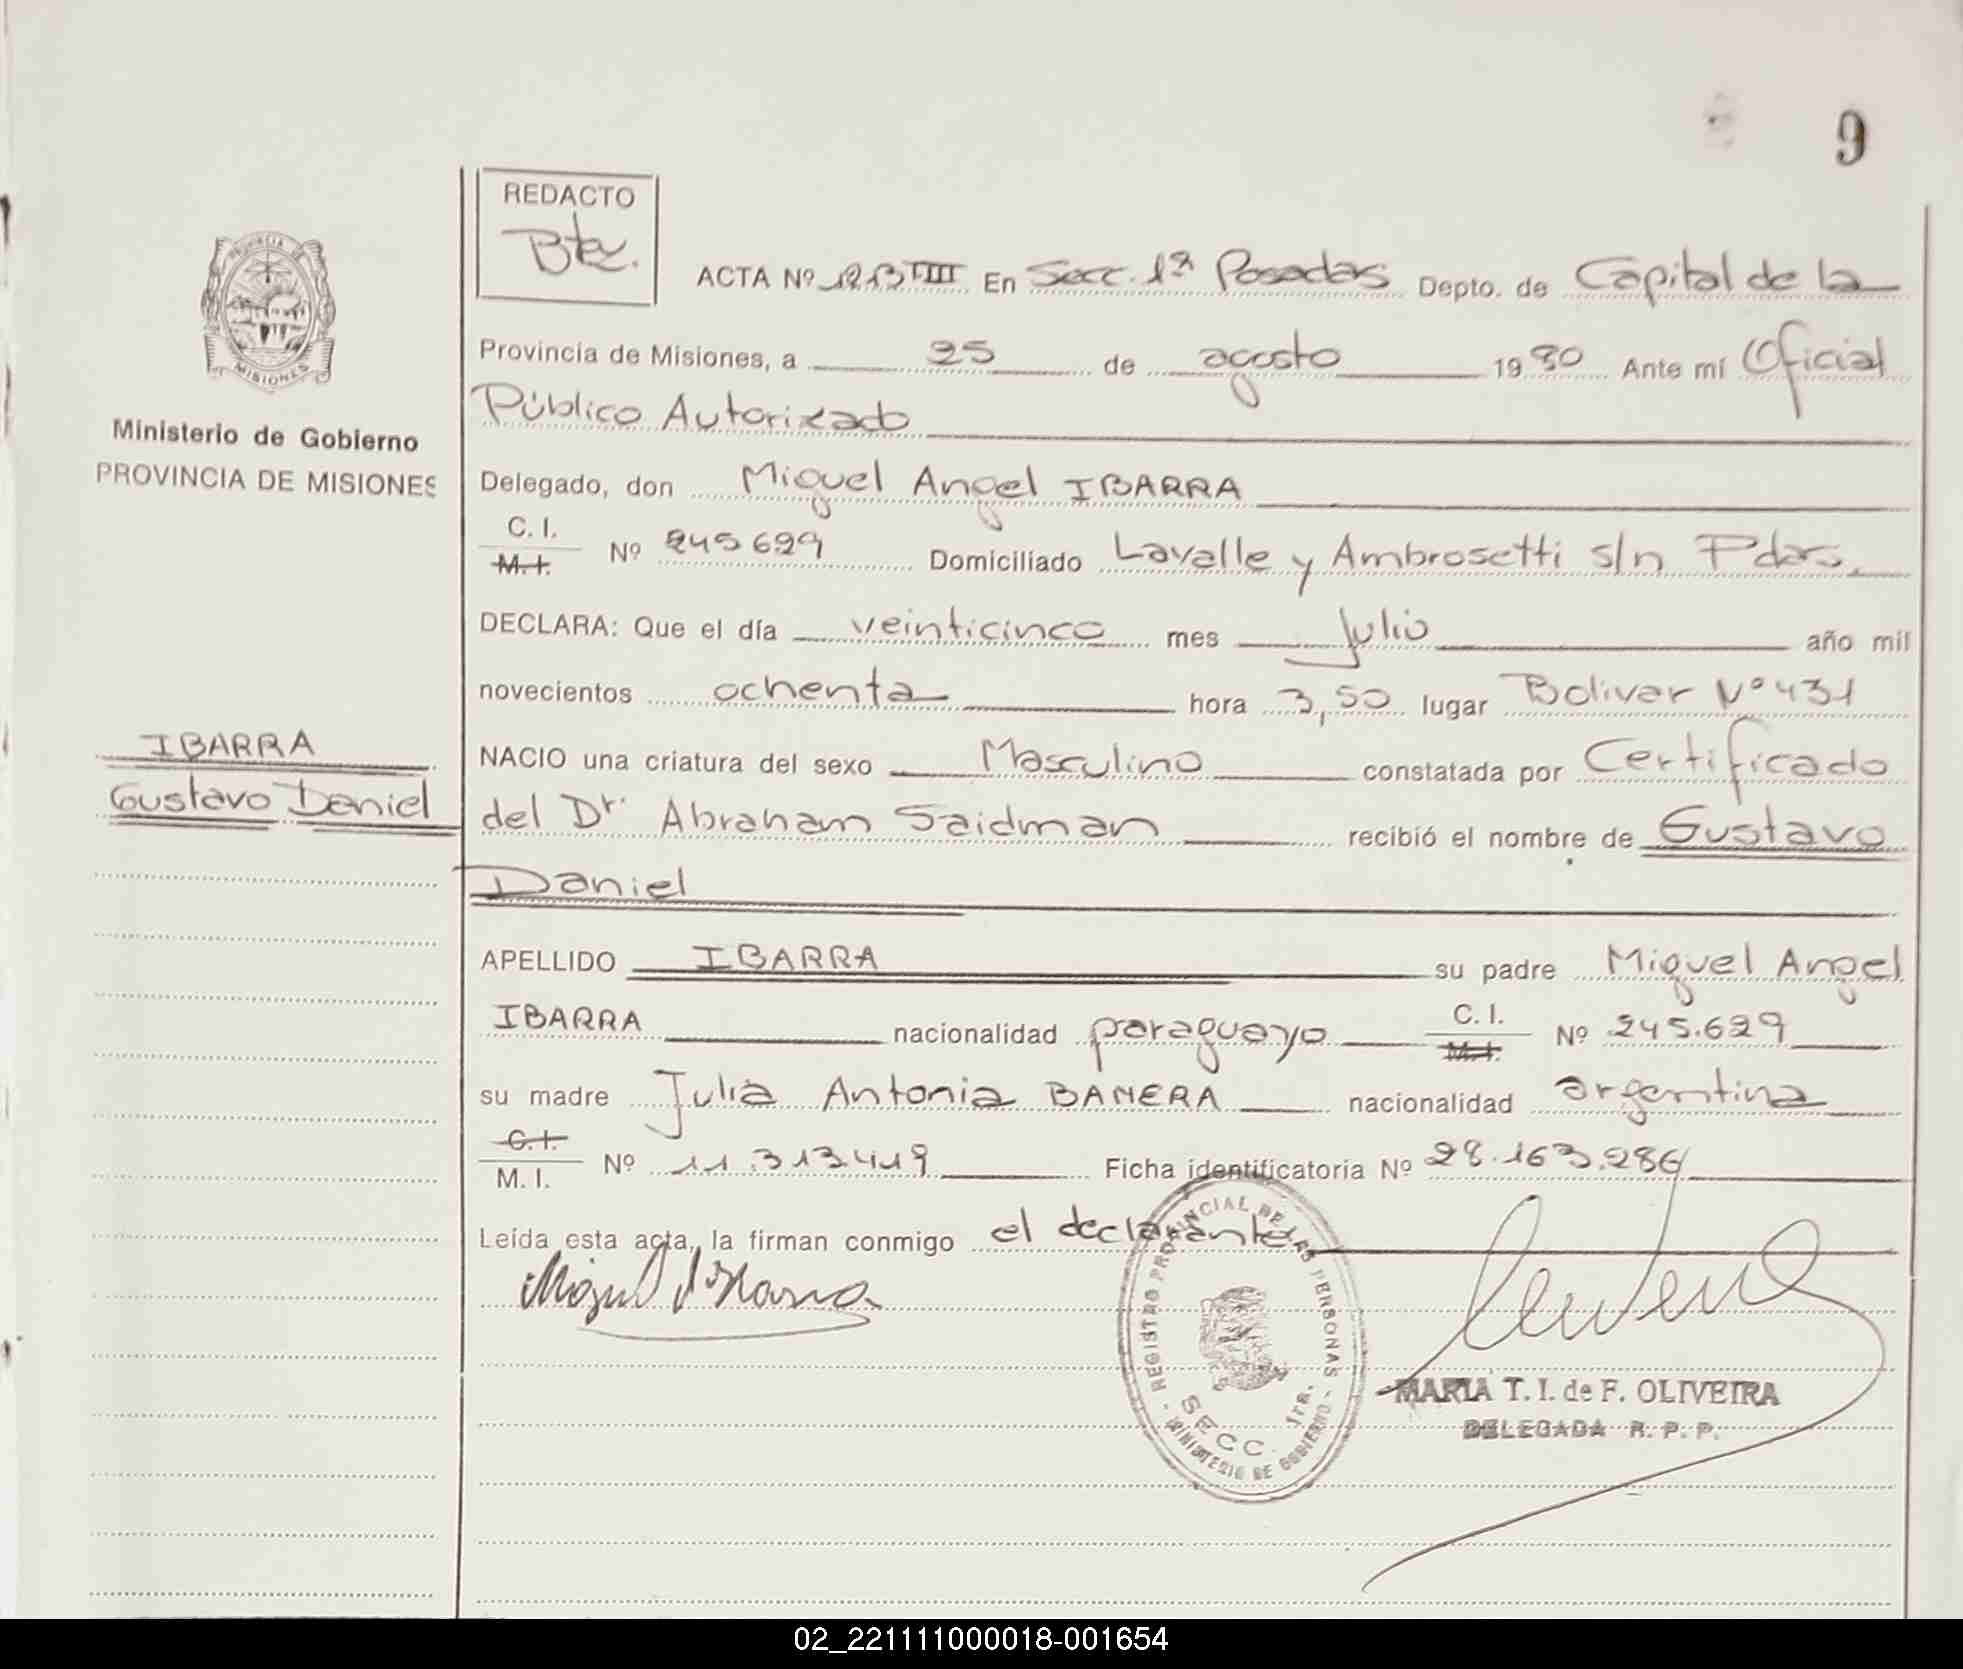 9
REDACTO
Btez.
ACTA Nº 1213 VIII En Secc. 1ª Posadas Depto. de Capital de la
Provincia de Misiones, a 25 de agosto 1980 Ante mí Oficial
Público Autorizado
Ministerio de Gobierno
PROVINCIA DE MISIONES
Delegado, don Miguel Angel IBARRA
C. I.
M. I. Nº 245629 Domiciliado Lavalle y Ambrosetti s/n Pdas.
DECLARA: Que el día veinticinco mes Julio año mil
novecientos ochenta hora 3,50 lugar Bolivar Nº 431
IBARRA
Gustavo Daniel
NACIO una criatura del sexo Masculino constatada por Certificado
del Dr. Abraham Saidman recibió el nombre de Gustavo
Daniel
APELLIDO IBARRA su padre Miguel Angel
IBARRA nacionalidad paraguayo C. I. M. I. Nº 245.629
su madre Julia Antonia BAMERA nacionalidad argentina
C. I.
M. I. Nº 11.313.419 Ficha identificatoria Nº 28.163.286
Leída esta acta, la firman conmigo el declarante
Miguel A Ibarra
REGISTRO PROVINCIAL DE LAS PERSONAS
SECC. 1ra.
- MINISTERIO DE GOBIERNO -
MARIA T. I. de F. OLIVEIRA
DELEGADA R. P. P.
MISIONES
02_221111000018-001654